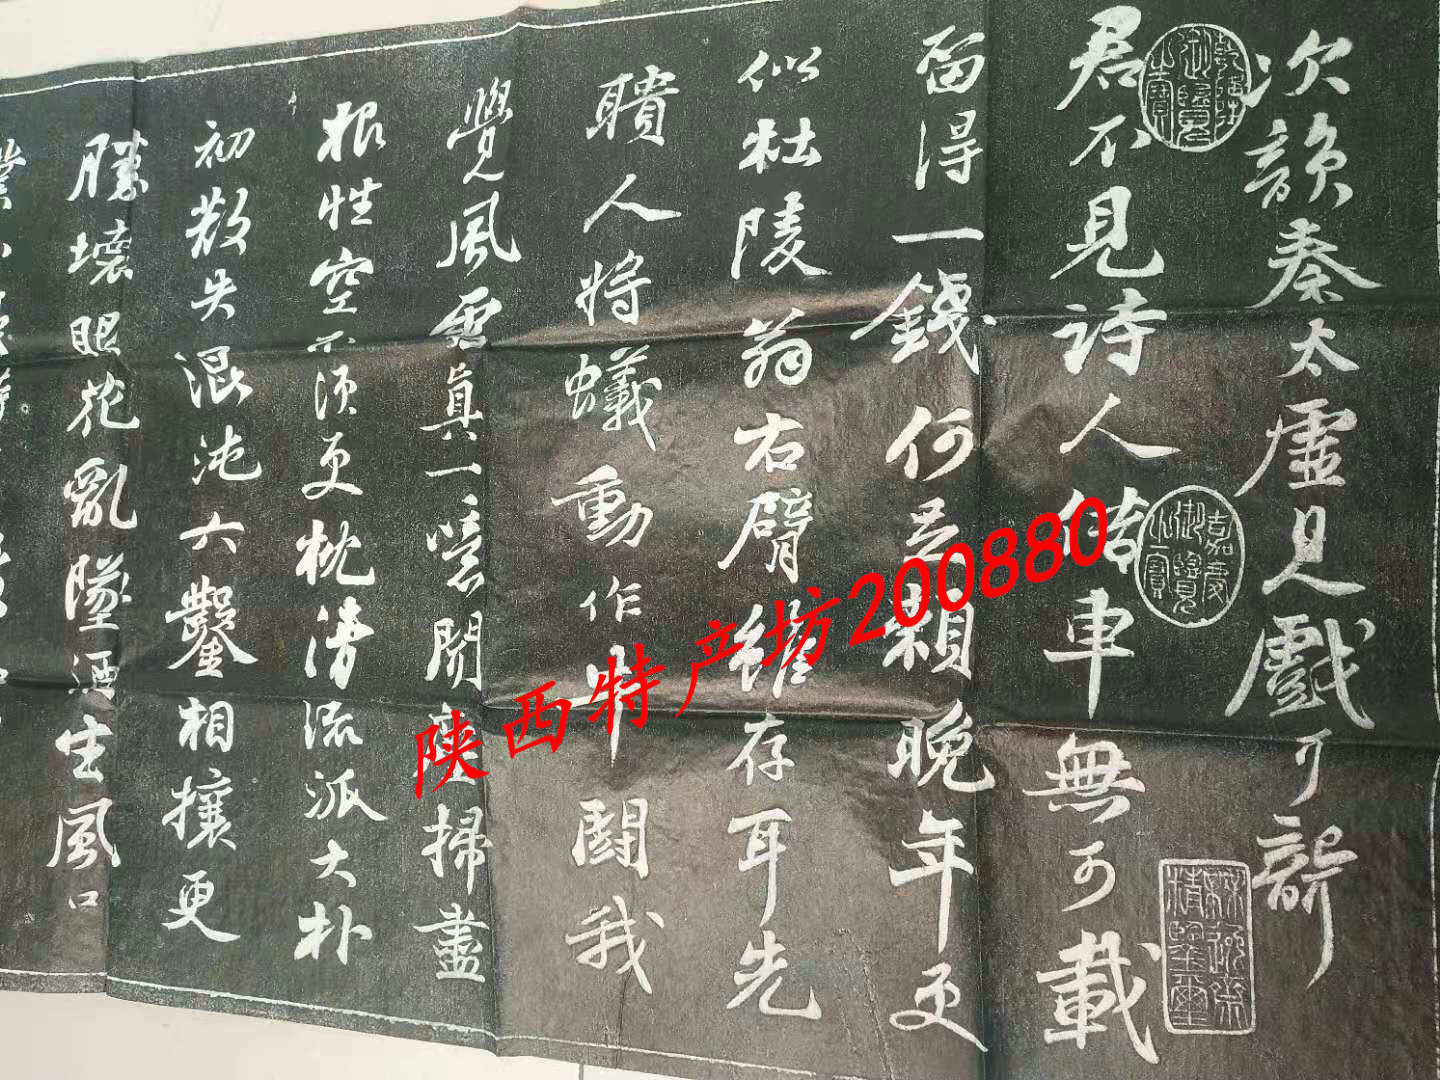 次韻秦太虛見戲耳聾
君不見詩人借車無可載
留得一錢何足賴晚年更
似杜陵翁右臂雖存耳先
聵人將蟻動作牛鬭我
覺風雷真一噫聞塵掃盡
根性空不須更枕清流派大朴
初散失混沌六鑿相攘更
勝壞眼花亂墜酒生風口
業
乾隆御覽之寶
嘉慶御覽之寶
陕西特产坊200880